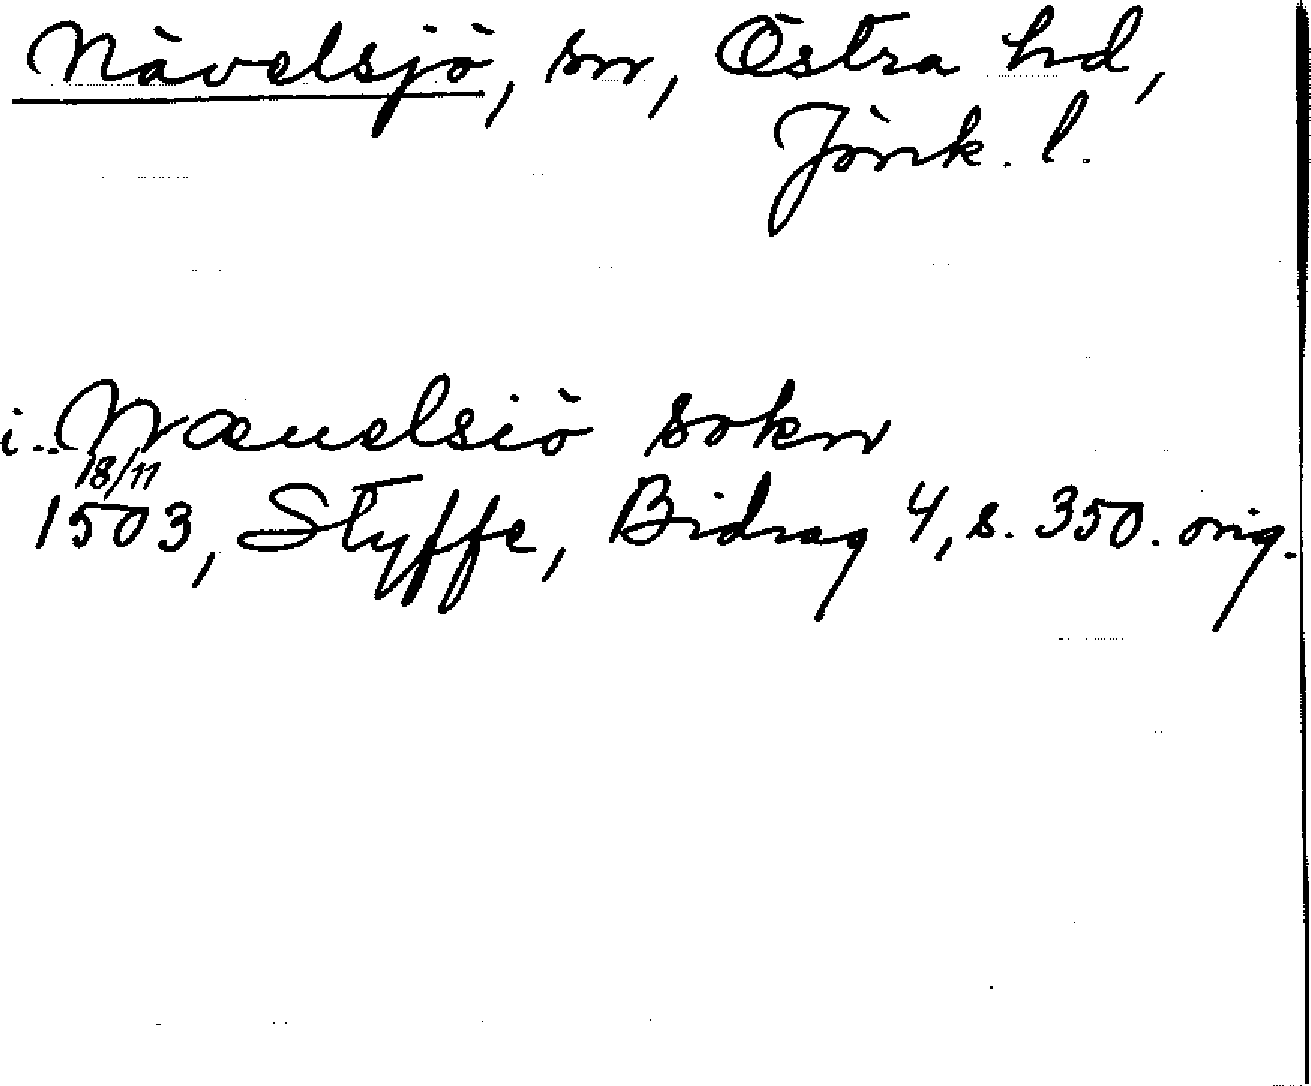 Nävelsjö, sn, Östra hd,
Jönk. l.
i.. Næuelsiö sokn
18/11
1503, Styffe, Bidrag 4, s. 350. orig.